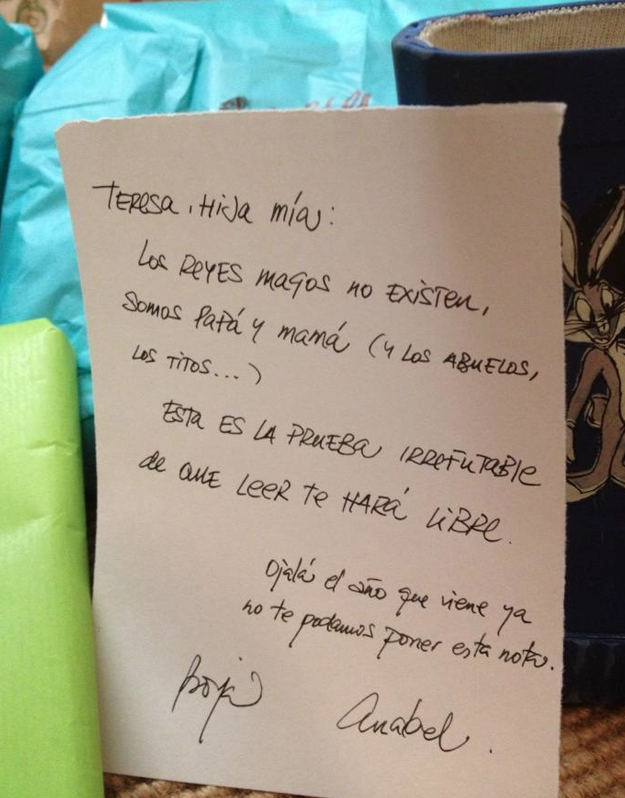 TERESA, HIJA MÍA:
LOS REYES MAGOS NO EXISTEN,
SOMOS PAPÁ Y MAMÁ (Y LOS ABUELOS,
LOS TITOS...)
ESTA ES LA PRUEBA IRREFUTABLE
de QUE LEER TE HARÁ LIBRE.
Ojalá el año que viene ya
no te podamos poner esta nota.
Borja Anabel.